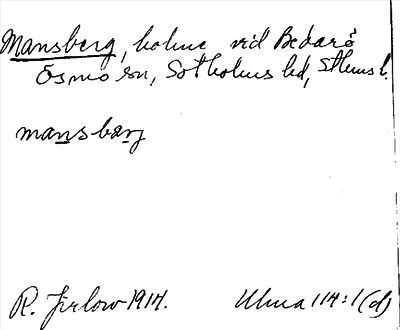 Mansberg, holme vid Bedarö
Ösmo sn, Sotholms hd, Sthlms l.
mansbærj
R. Jirlow 1914. Ulma 114:1(d)